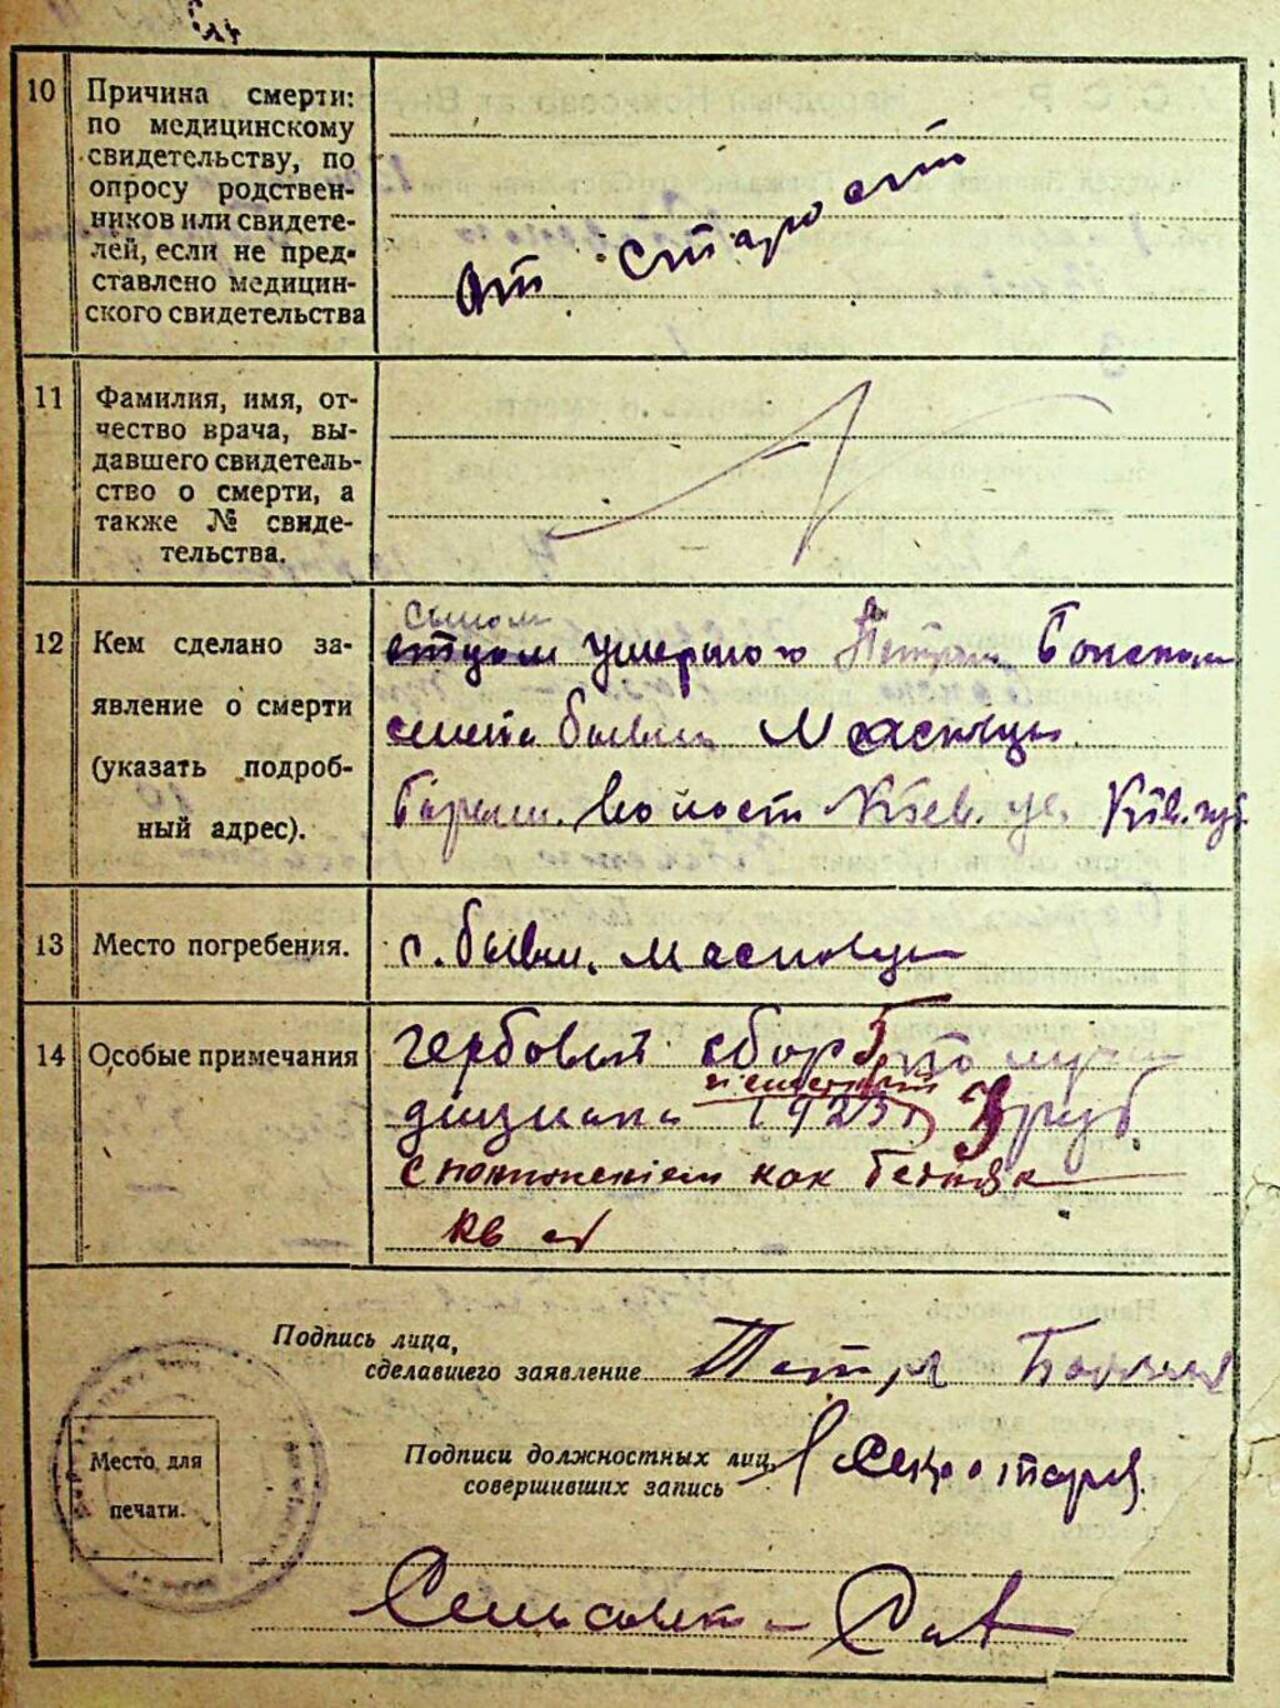 10
Причина смерти:
по медицинскому
свидетельству, по
опросу родствен-
ников или свидете-
лей, если не пред-
ставлено медицин-
ского свидетельства
от старости
11
Фамилия, имя, от-
чество врача, вы-
давшего свидетель-
ство о смерти, а
также № свиде-
тельства.
12
Кем сделано за-
явление о смерти
(указать подроб-
ный адрес).
сыном
отцом умершого Петром
бывш Масковцы
волост Киев. у. Киев. губ.
13
Место погребения.
с. бывш. Масковцы
14
Особые примечания
гербовый сбор 5
дизнака 1923 г 3 руб
с понижением как бедняк
Подпись лица,
сделавшего заявление
Петро
Подписи должностных лиц,
совершивших запись
Секретарь
Место для
печати.
Сельсовета